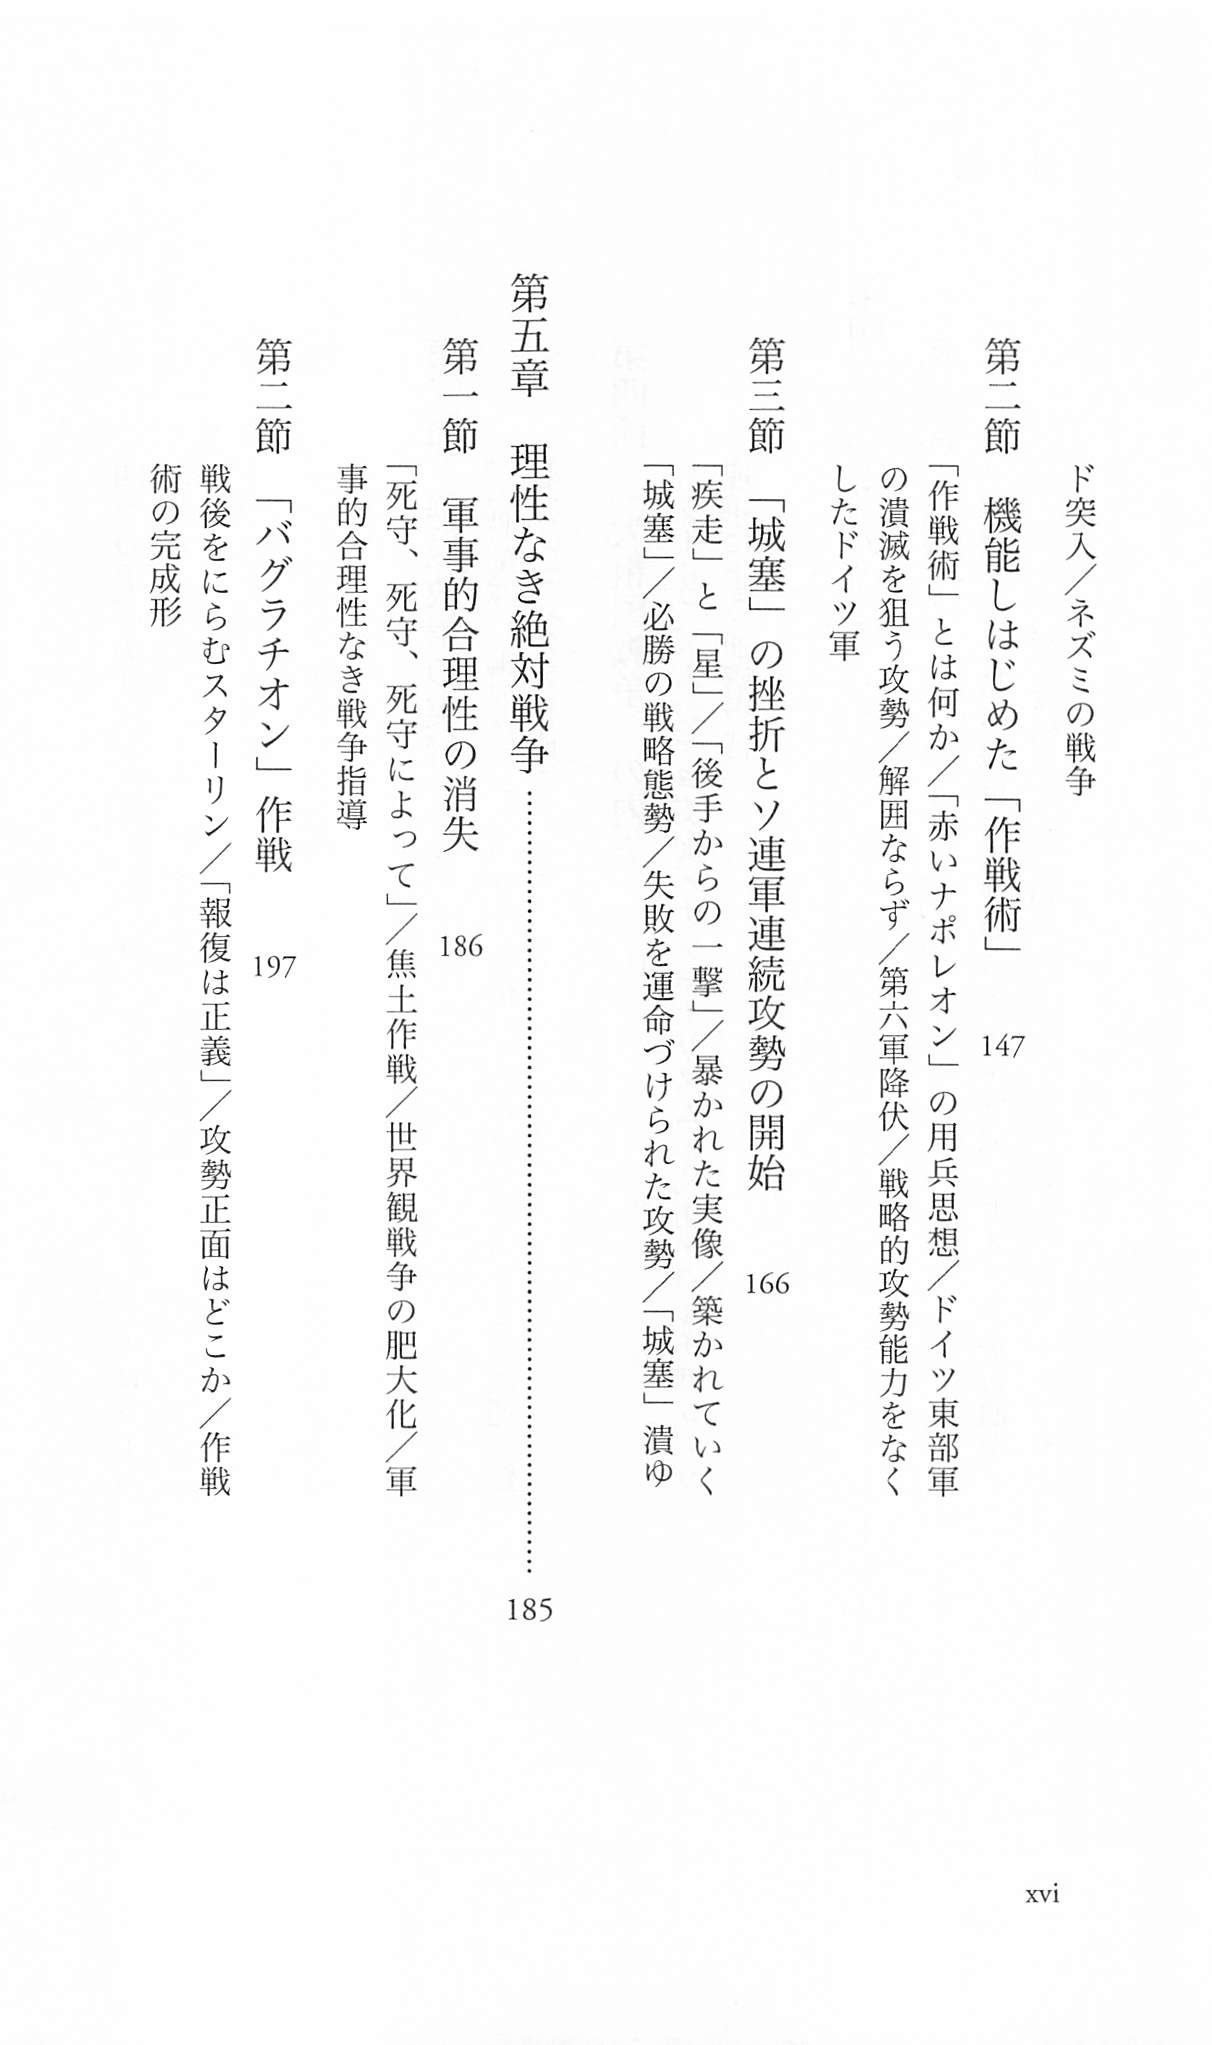 ド突入／ネズミの戦争
第二節　機能しはじめた「作戦術」　147
「作戦術」とは何か／「赤いナポレオン」の用兵思想／ドイツ東部軍
の潰滅を狙う攻勢／解囲ならず／第六軍降伏／戦略的攻勢能力をなく
したドイツ軍
第三節　「城塞」の挫折とソ連軍連続攻勢の開始　166
「疾走」と「星」／「後手からの一撃」／暴かれた実像／築かれていく
「城塞」／必勝の戦略態勢／失敗を運命づけられた攻勢／「城塞」潰ゆ
第五章　理性なき絶対戦争……………………………………185
第一節　軍事的合理性の消失　186
「死守、死守、死守によって」／焦土作戦／世界観戦争の肥大化／軍
事的合理性なき戦争指導
第二節　「バグラチオン」作戦　197
戦後をにらむスターリン／「報復は正義」／攻勢正面はどこか／作戦
術の完成形
xvi